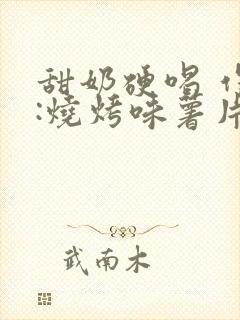 甜奶硬唱
:燒烤味薯片
武南木